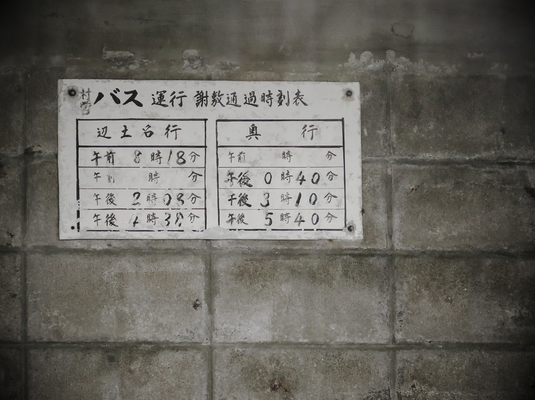 村営バス 運行 謝敷通過時刻表
辺土名行 奥行
午前 8時18分 午前 時 分
午前 時 分 午後 0時40分
午後 2時08分 午後 3時10分
午後 4時38分 午後 5時40分